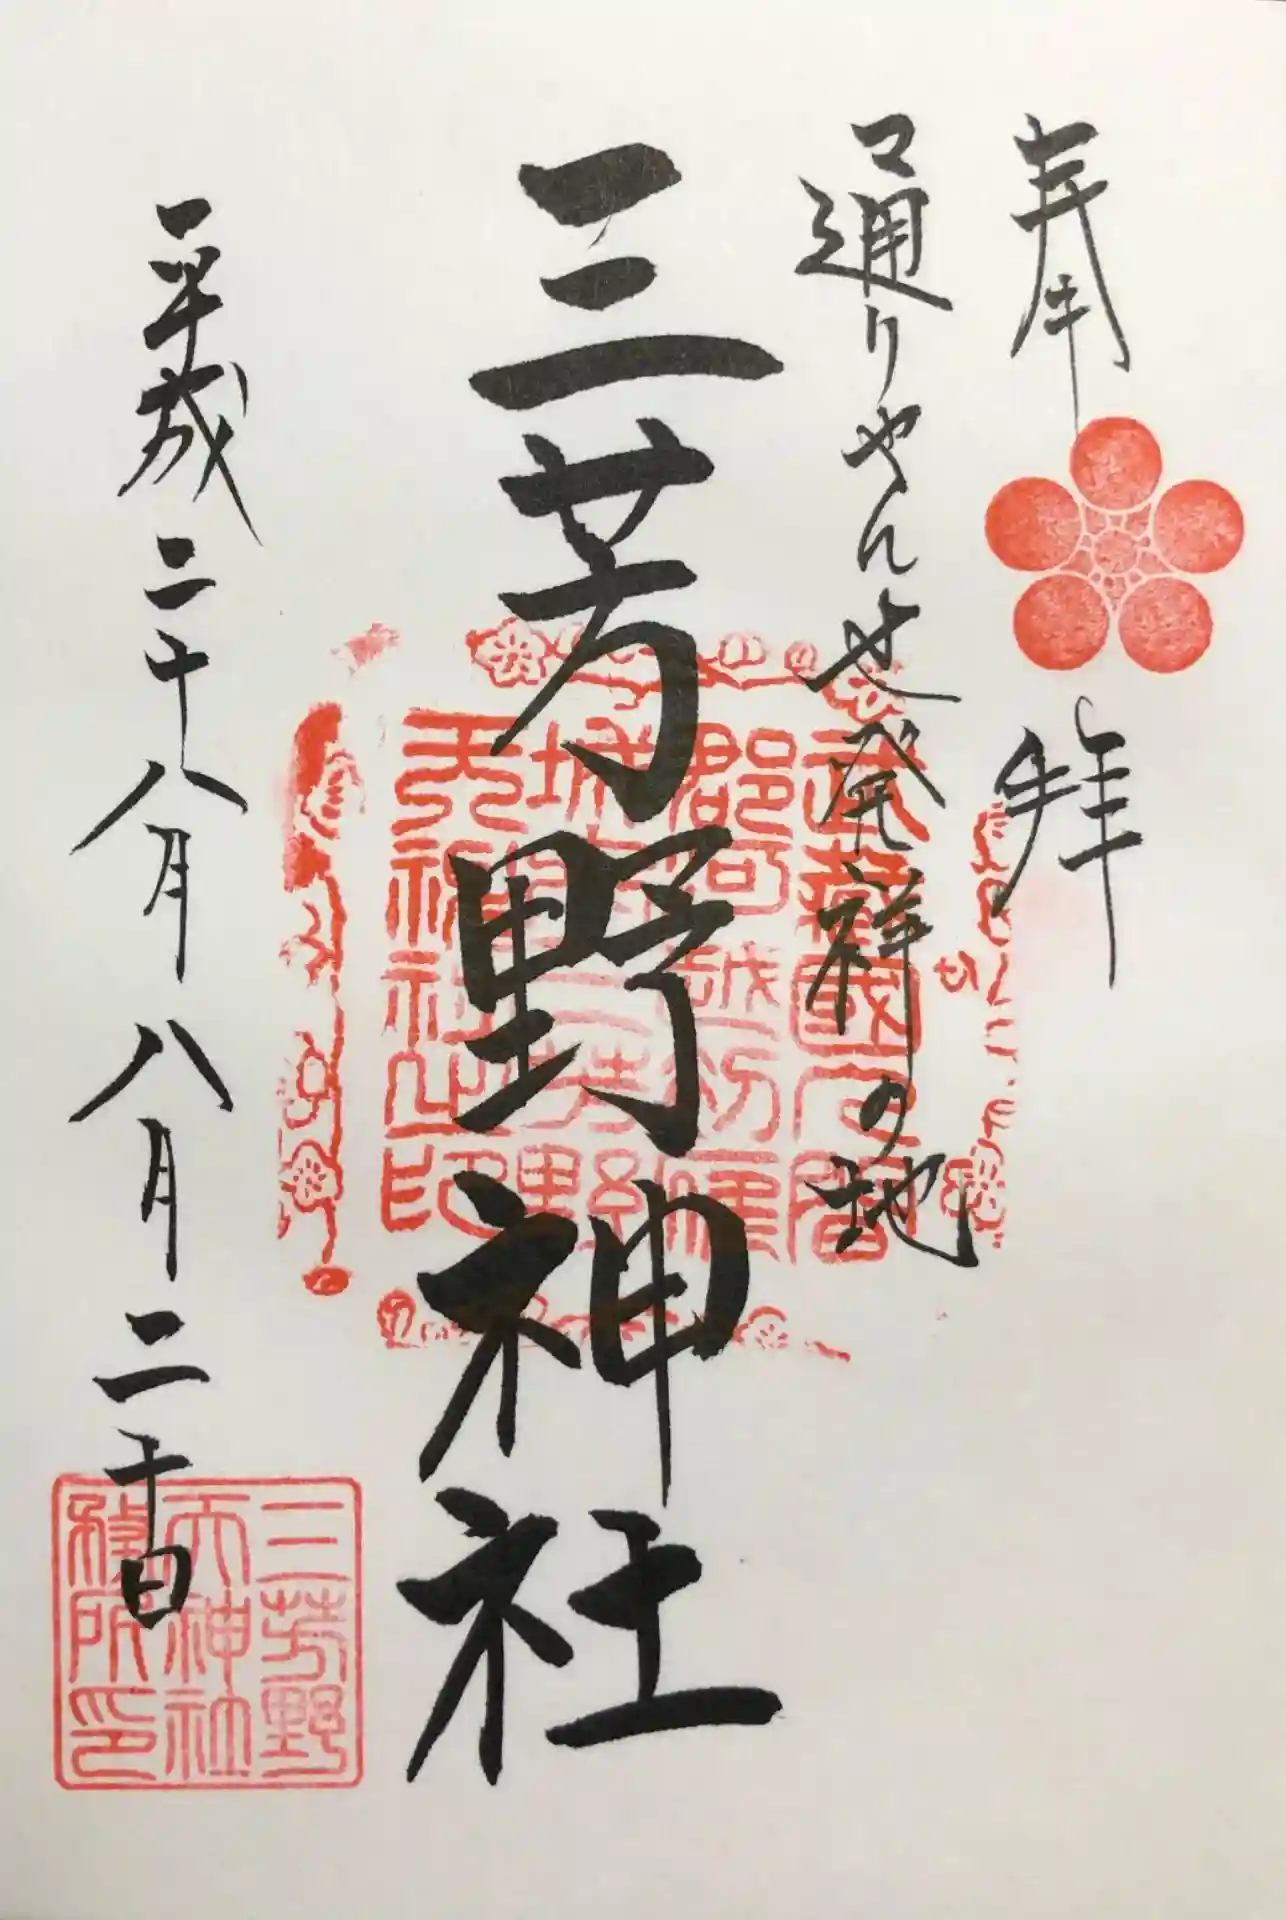 奉拝
通りゃんせ発祥の地
三芳野神社
平成二十八月八月二十日
武藏國入間
郡河越初雁
城内三芳野
天神社之印
三芳野
天神社
務所印